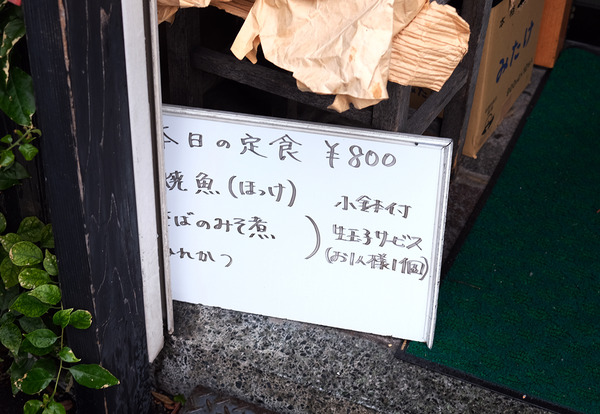 本日の定食 ¥800
焼魚(ほっけ)
さばのみそ煮
ひれかつ
小鉢付
生玉子サービス
(お1人様1個)
みたけ